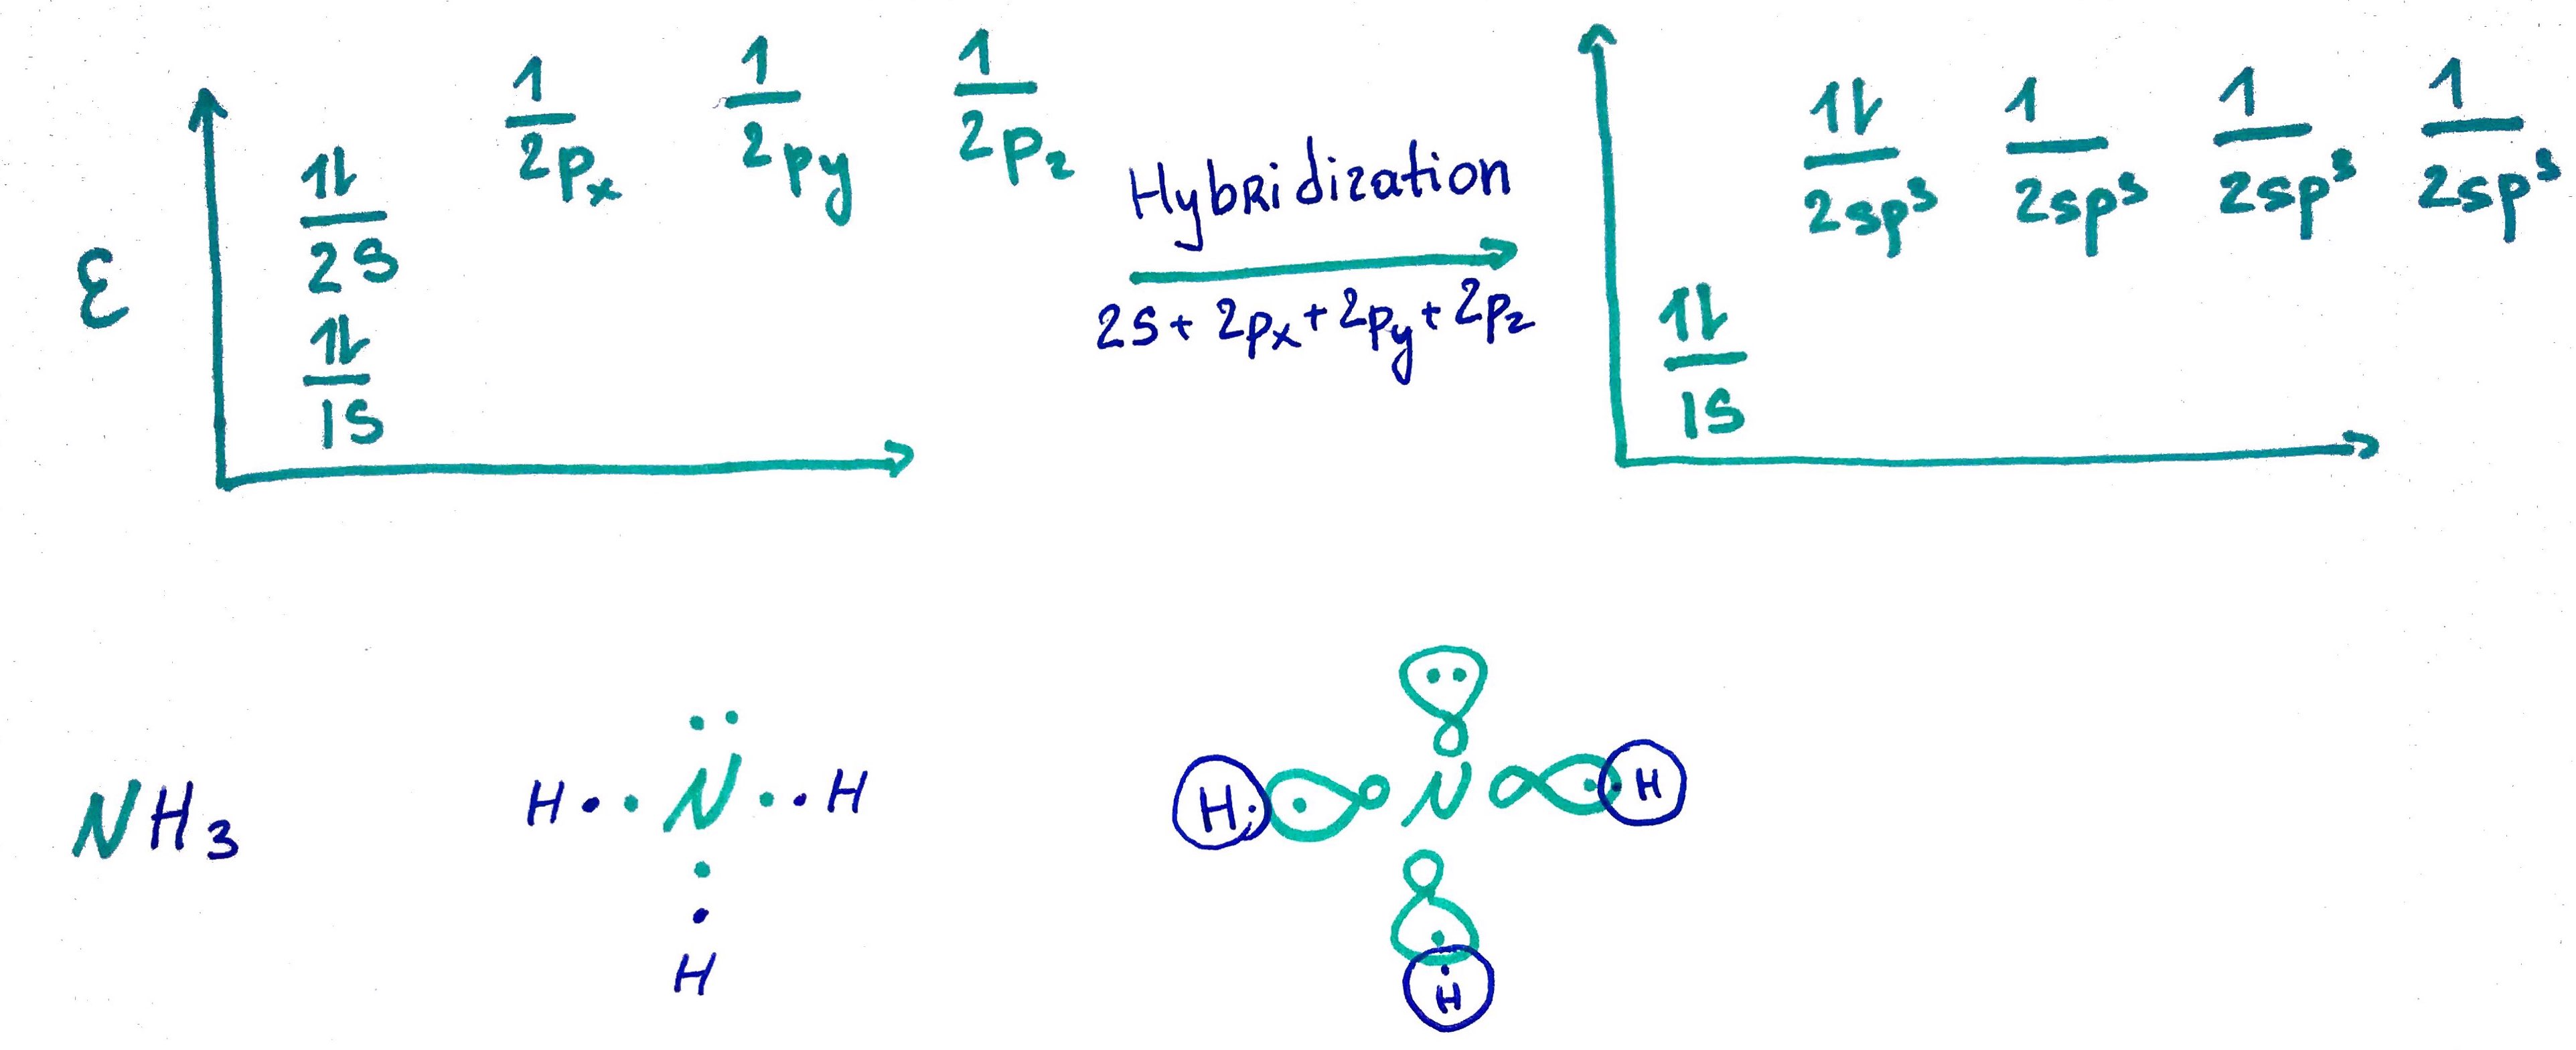 ε
1⇂
2s
1⇂
1s
1
2px
1
2py
1
2pz
Hybridization
2s + 2px + 2py + 2pz
1⇂
2sp³
1
2sp³
1
2sp³
1
2sp³
1⇂
1s
NH₃
H · · N · · H
H
H N H
H